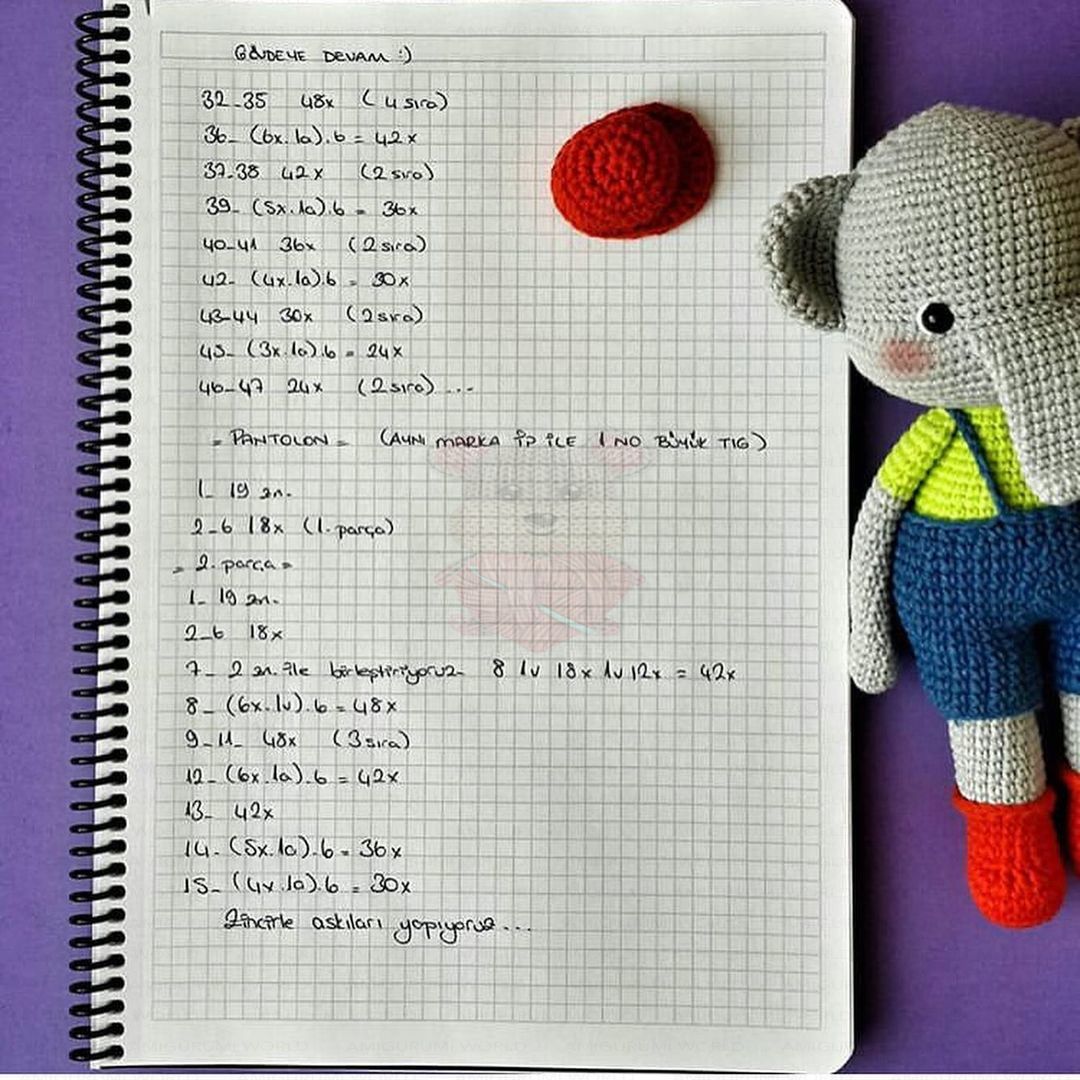 GÖVDEYE DEVAM :)
32-35 48x (4 sıra)
36- (6x.1a).6 = 42x
37-38 42x (2 sıra)
39- (5x.1a).6 = 36x
40-41 36x (2 sıra)
42- (4x.1a).6 = 30x
43-44 30x (2 sıra)
45- (3x.1a).6 = 24x
46-47 24x (2 sıra)...
= PANTOLON = (AYNI MARKA İP İLE 1 NO BÜYÜK TIĞ)
1- 19 zn.
2-6 18x (1. parça)
= 2. parça =
1- 19 zn.
2-6 18x
7- 2 zn. ile birleştiriyoruz 8 1v 18x 1v 12x = 42x
8- (6x.1v).6 = 48x
9-11- 48x (3 sıra)
12- (6x.1a).6 = 42x
13- 42x
14- (5x.1a).6 = 36x
15- (4x.1a).6 = 30x
Zincirle askıları yapıyoruz...
AMIGURUMI WORLD AMIGURUMI WORLD